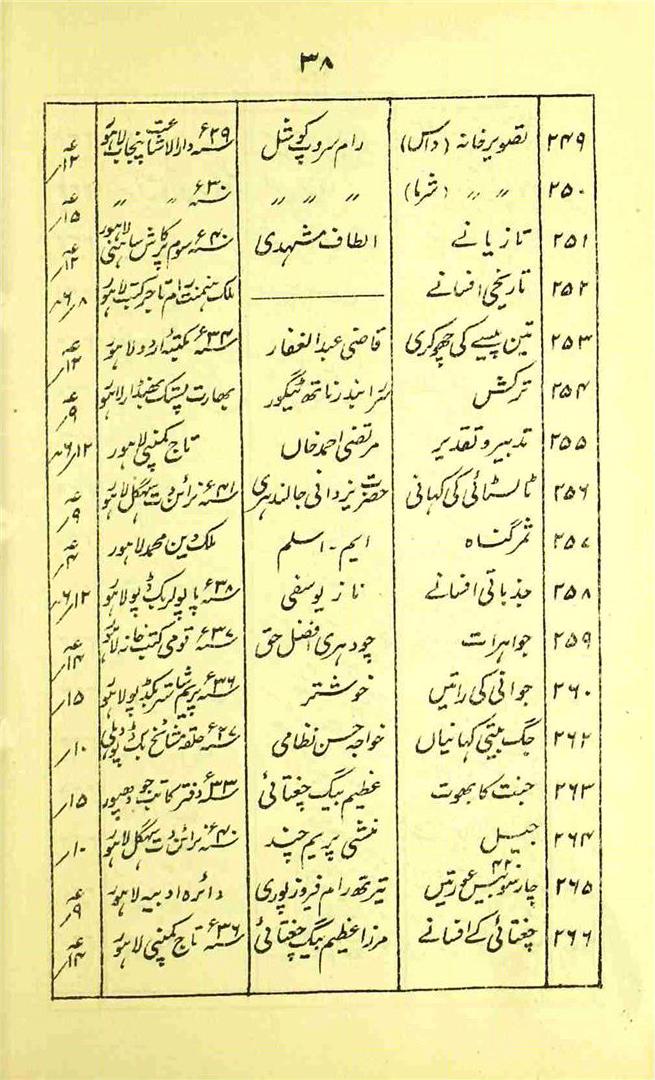 ۳۸
۲۴۹ تصویر خانہ (داس) رام سروپ کوشل ۶۲۹ء دارالاشاعت پنجاب لاہور ۱۲/
۲۵۰〃 〃 (شرما) 〃 〃 〃 ۶۳۰ء 〃 〃 ۱۵/
۲۵۱ تازیانے الطاف مشہدی ۶۴۰ء سوم پرکاش ساہنی لاہور ۱۲/
۲۵۲ تاریخی افسانے ——— ملک ہنمنت رام تاجر کتب لاہور ۸/
۲۵۳ تین پیسے کی چھوکری قاضی عبدالغفار ۶۳۴ء مکتبہ اردو لاہور ۱۲/
۲۵۴ ترکش رابندر ناتھ ٹیگور بھارت پستک بھنڈار لاہور ۹/
۲۵۵ تدبیر و تقدیر مرتضی احمد خاں تاج کمپنی لاہور ۱۲/
۲۵۶ ٹالسٹائی کی کہانی حضرت یزدانی جالندہری ۶۴۱ء نرائن دت سہگل لاہور ۹/
۲۵۷ ثمر گناہ ایم - اسلم ملک دین محمد لاہور ۴/
۲۵۸ جذباتی افسانے ناز یوسفی ۶۳۸ء پاپولر بکڈپو لاہور ۱۲/
۲۵۹ جواہرات چودہری افضل حق ۶۳۷ء قومی کتب خانہ لاہور ۱۴/
۲۶۰ جوانی کی راتیں خوشتر ۶۳۶ء پریم شاستر بکڈپو لاہور ۱۵/
۲۶۲ جگ بیتی کہانیاں خواجہ حسن نظامی ۶۲۷ء حلقہ مشائخ بکڈپو دہلی ۱۰/
۲۶۳ جنت کا بھوت عظیم بیگ چغتائی ۶۳۳ء دفتر کاتب جودھپور ۱۵/
۲۶۴ جیل منشی پریم چند ۶۴۰ء نرائن دت سہگل لاہور ۱۰/
۲۶۵ چار سو بیس ۴۲۰ عورتیں تیرتھ رام فیروزپوری دائرہ ادبیہ لاہور ۹/
۲۶۶ چغتائی کے افسانے مرزا عظیم بیگ چغتائی ۶۳۶ء تاج کمپنی لاہور ۱۴/